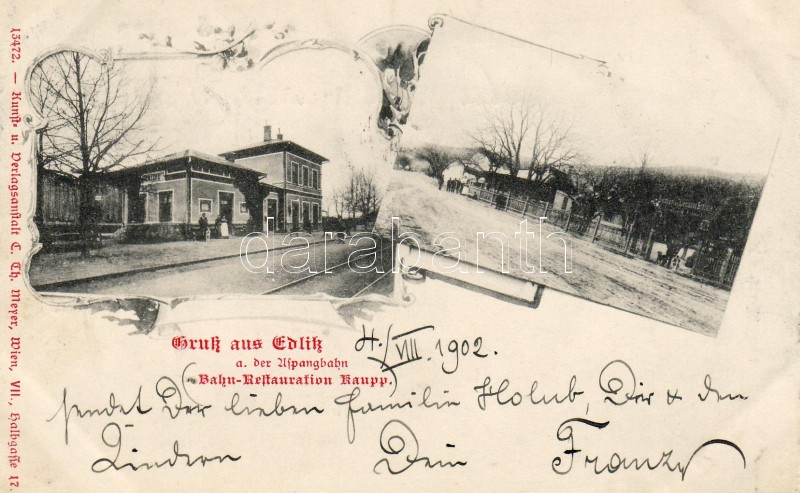 13472. — Kunst- u. Verlagsanstalt C. Th. Meyer, Wien, VII., Halbgasse 17.
darabanth
Gruß aus Edlitz
a. der Aspangbahn
Bahn-Restauration Kaupp.
4./VIII. 1902.
sendet Dir lieben Familie Holub, Dir & den
Kindern Dein Franz